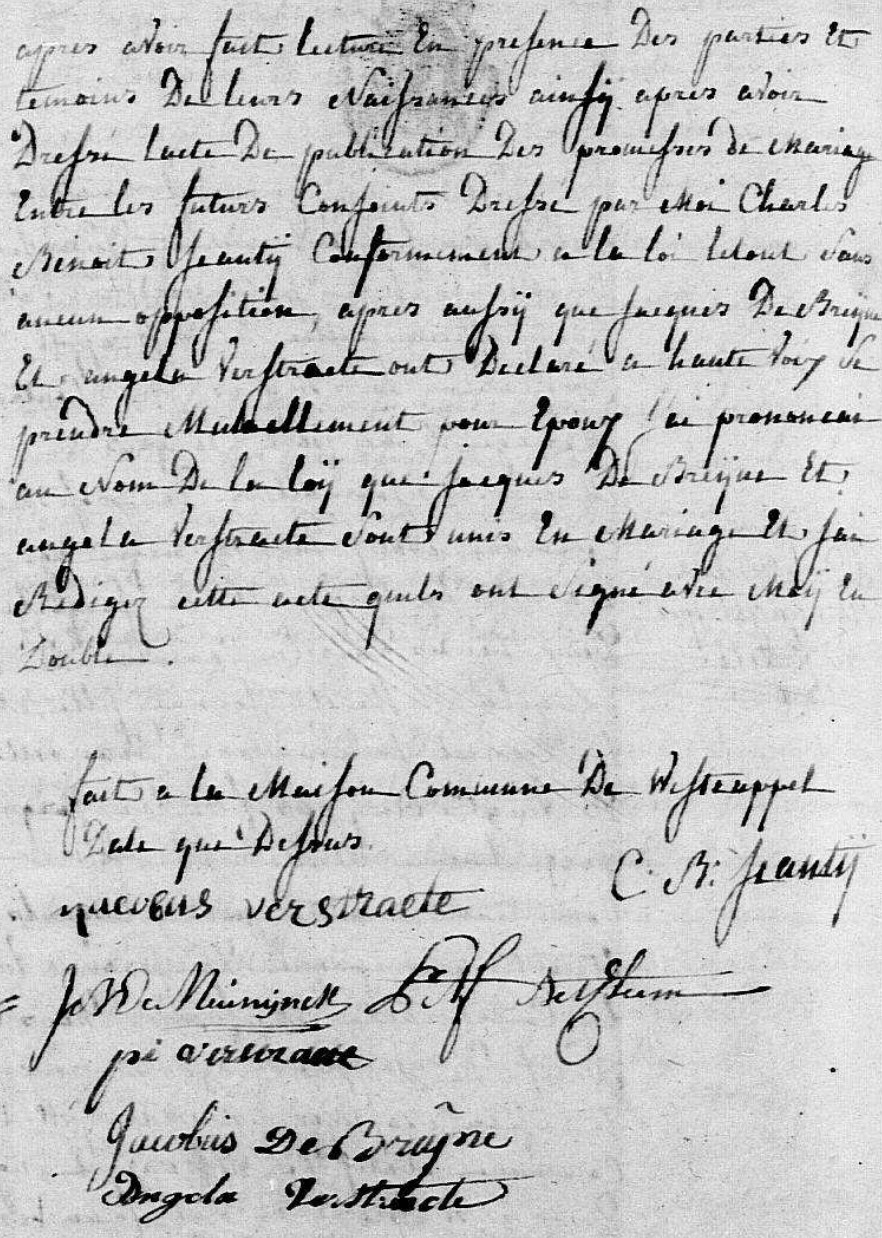 apres avoir fait lecture En presence Des parties Et
temoins De leurs Naissances ainsÿ apres avoir
Dressé lacte De publication Des promesses de Mariage
Entre les futurs Conjoints Dressé par Moi Charles
Benoit Jeantÿ Conformement a la loi letout Sans
aucun opposition, apres aussÿ que Jacques De Breÿne
Et angela Verstraete ont Declaré a haute Voix Se
prendre Mutuellement pour Epoux J'ai prononcai
au Nom De la loÿ que Jacques De Breÿne Et
angela Verstraete Sont unis En Mariage Et Jai
Rediger cette acte quils ont Signé avec Moÿ En
Double.
fait a la Maison Commune De Westcappel
Date que Dessus.
C. B. Jeantÿ
jacobus verstraete
De Meunijnck
pi verstraete
Jacobus De Bruÿne
Angela Verstraete